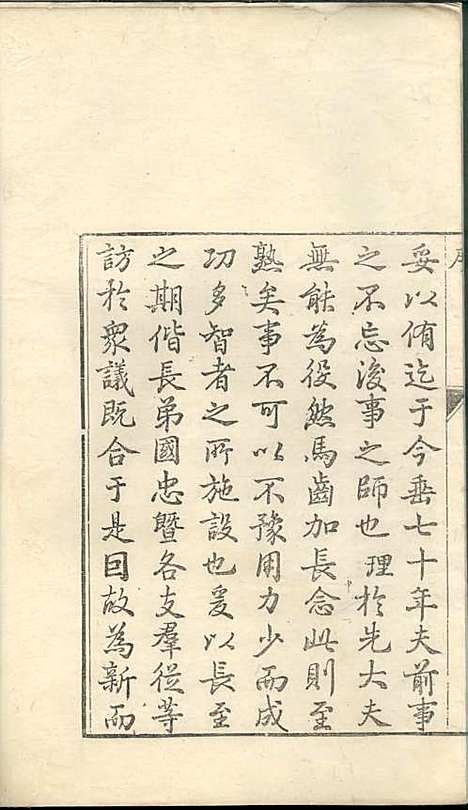 妥以侑迄于今垂七十年夫前事
之不忘後事之師也理於先大夫
無能為役然馬齒加長念此則至
熟矣事不可以不豫用力少而成
功多智者之所施設也爰以長至
之期偕長弟國忠暨各支羣從等
訪於衆議既合于是回故為新而